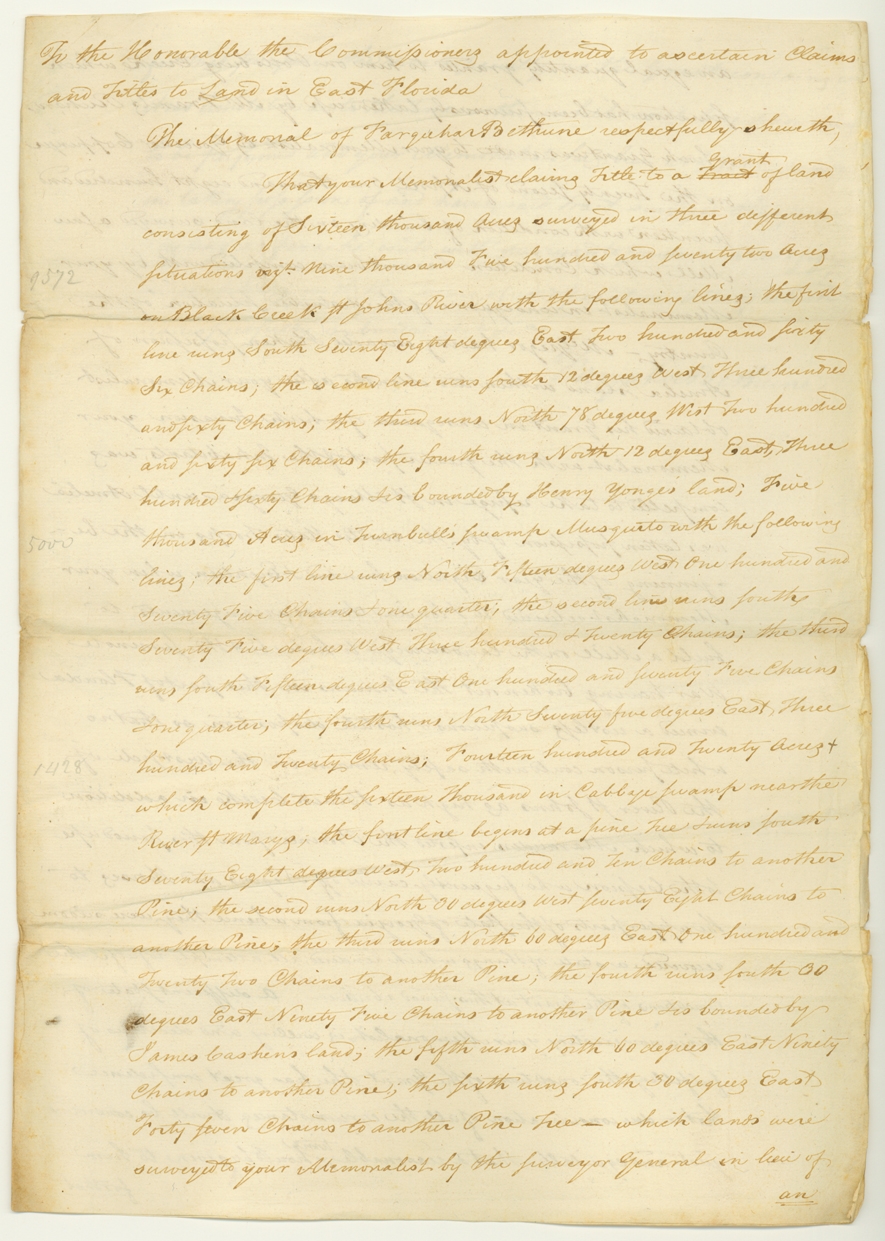 To the Honorable the Commissioners appointed to ascertain Claims
and Titles to Land in East Florida
The Memorial of Farquhar Bethune respectfully sheweth,
That your Memorialist claims Title to a Tract Grant of land
consisting of Sixteen thousand Acres surveyed in three different
situations vizt. Nine thousand Five hundred and seventy two Acres
9572
on Black Creek St Johns River with the following lines; the first
line runs South Seventy Eight degrees East Two hundred and sixty
Six Chains; the second line runs south 12 degrees West Three hundred
and sixty Chains; the third runs North 78 degrees West Two hundred
and sixty six Chains; the fourth runs North 12 degrees East, Three
hundred & sixty Chains & is bounded by Henry Yonge's land; Five
5000
thousand Acres in Turnbull's swamp Musquito with the following
lines; the first line runs North Fifteen degrees West One hundred and
Seventy Five Chains & one quarter; the second line runs south
Seventy Five degrees West Three hundred & Twenty Chains; the third
runs south Fifteen degrees East One hundred and seventy Five Chains
& one quarter; the fourth runs North Seventy five degrees East Three
hundred and Twenty Chains; Fourteen hundred and Twenty Acres +
1428
which complete the sixteen thousand in Cabbage swamp near the
River St Marys; the first line begins at a pine Tree & runs south
Seventy Eight degrees West, Two hundred and Ten Chains to another
Pine; the second runs North 30 degrees West seventy Eight Chains to
another Pine; the third runs North 60 degrees East One hundred and
Twenty Two Chains to another Pine; the fourth runs south 30
degrees East Ninety Five Chains to another Pine & is bounded by
James Cashens land; the fifth runs North 60 degrees East Ninety
Chains to another Pine; the sixth runs south 30 degrees East
Forty seven Chains to another Pine Tree — which lands were
surveyed to your Memorialist by the surveyor General in lieu of
an